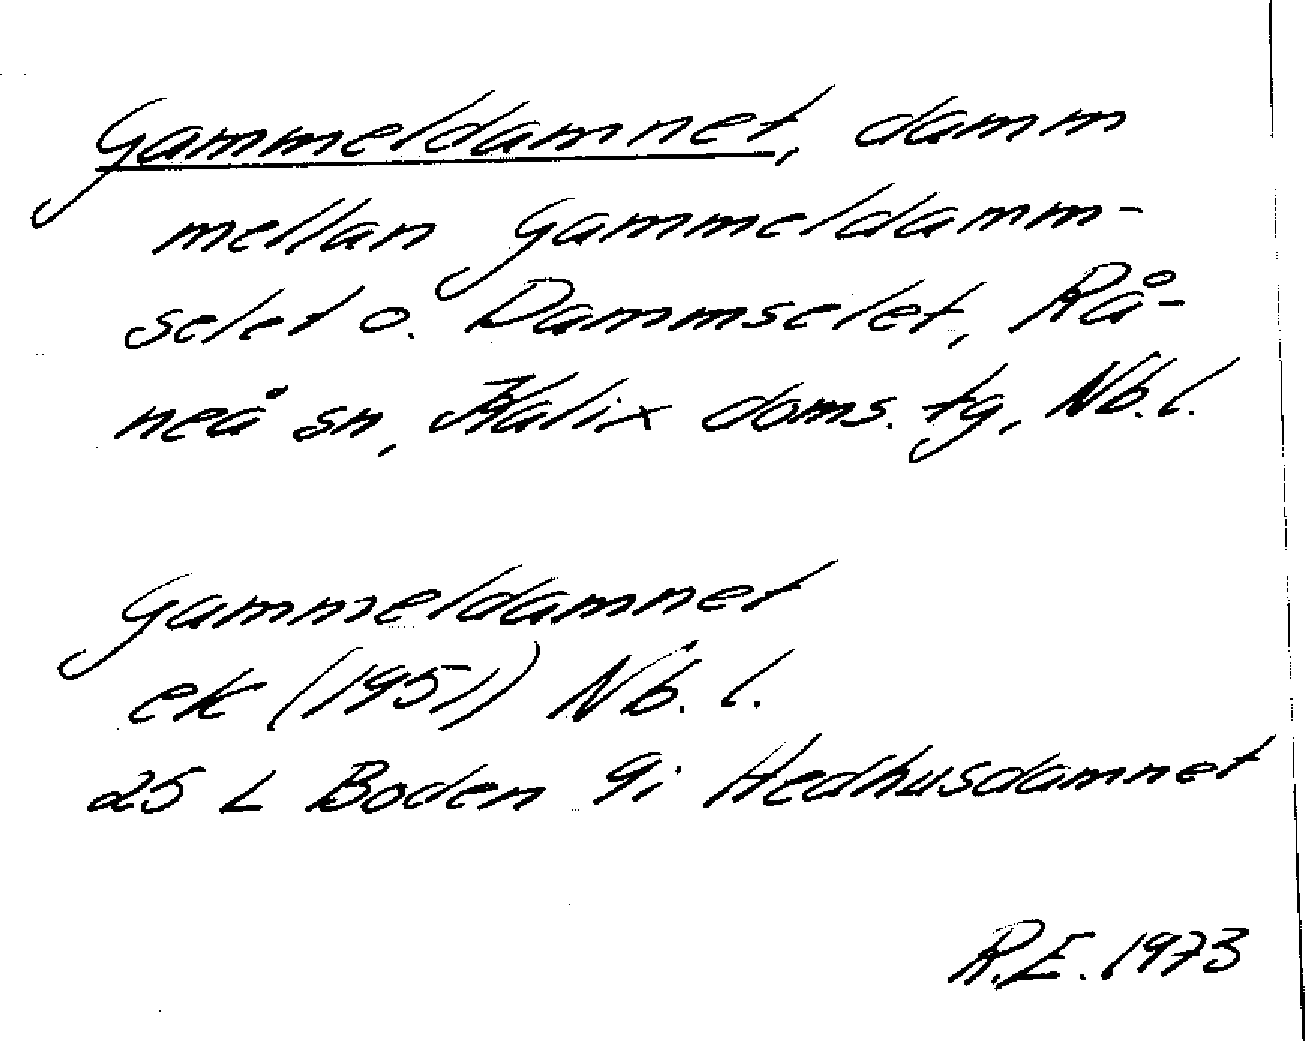 Gammeldamnet, damm
mellan Gammeldamm-
selet o. Dammselet, Rå-
neå sn, Kalix doms. tg, Nb. l.
Gammeldamnet
ek (1951) Nb. l.
25 L Boden 9i Hedhusdamnet
R.E. 1973